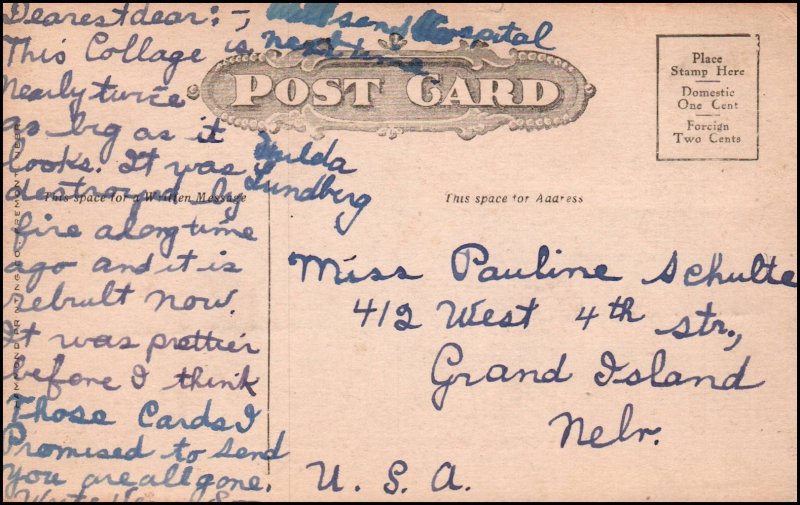 Dearest dear: -,
This Collage is
nearly twice
as big as it
looks. It was
destroyed by
fire a long time
ago and it is
rebuilt now.
It was prettier
before I think
Those Cards I
Promised to send
You are all gone.
Will send Hospital
next time
Hulda
Lundberg
POST CARD
Place
Stamp Here
Domestic
One Cent
Foreign
Two Cents
This space for a Written Message
This space for Address
Miss Pauline Schulte
412 West 4th str.,
Grand Island
Nebr.
U. S. A.